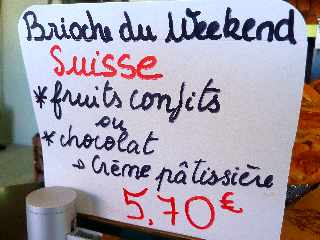 Brioche du Weekend
Suisse
* fruits confits
ou
* chocolat
→ Crème pâtissière
5,70 €